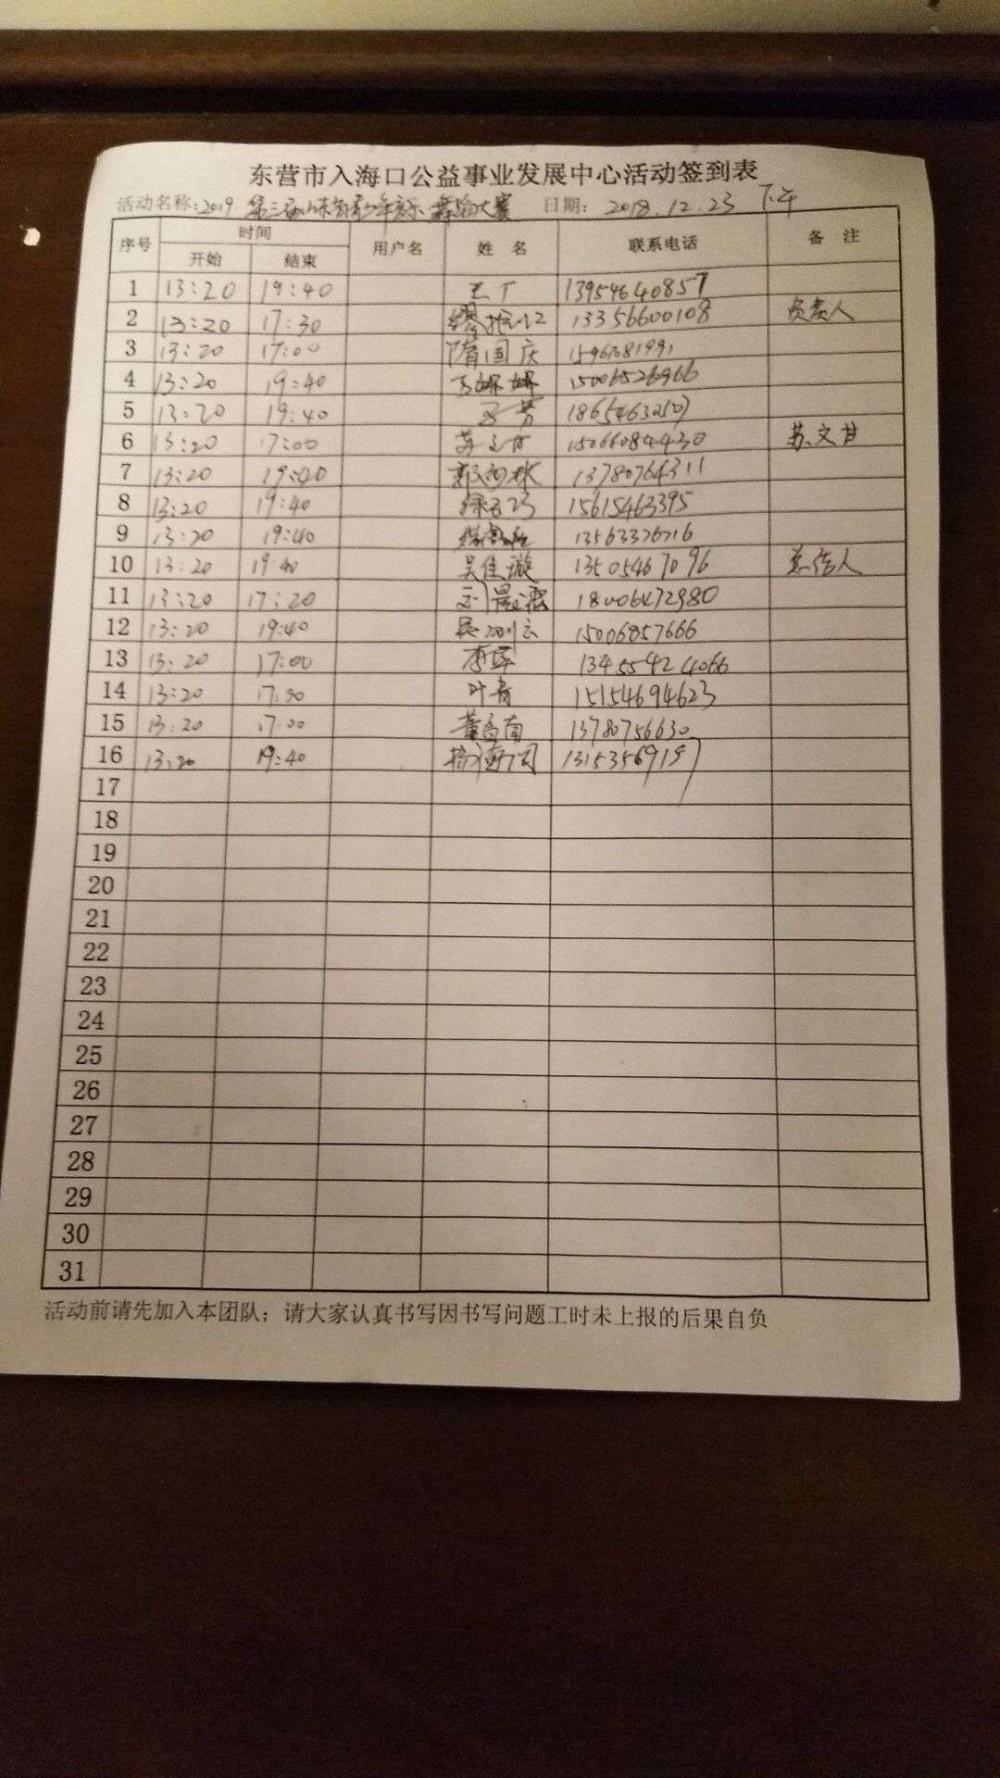 东营市入海口公益事业发展中心活动签到表
活动名称:2019 第三届山东省青少年音乐 舞蹈大赛 日期: 2018.12.23 下午
序号 时间 用户名 姓 名 联系电话 备 注
开始 结束
1 13:20 19:40 王丁 13954640857
2 13:20 17:30 13356600108 负责人
3 13:20 17:00 隋国庆
4 13:20 19:40 15006526966
5 13:20 19:40 芳
6 13:20 17:00 苏文甘 15066084430 苏文甘
7 13:20 19:40 13780764311
8 13:20 19:40 15615463395
9 13:20 19:40 13563376716
10 13:20 19:40 吴佳璇 13505467096 总结人
11 13:20 17:20 18006472980
12 13:20 19:40 15006857666
13 13:20 17:00 13455424066
14 13:20 17:00 叶青 15154694623
15 13:20 17:00 董孟南 13780756630
16 13:20 19:40 13153569197
17
18
19
20
21
22
23
24
25
26
27
28
29
30
31
活动前请先加入本团队；请大家认真书写因书写问题工时未上报的后果自负